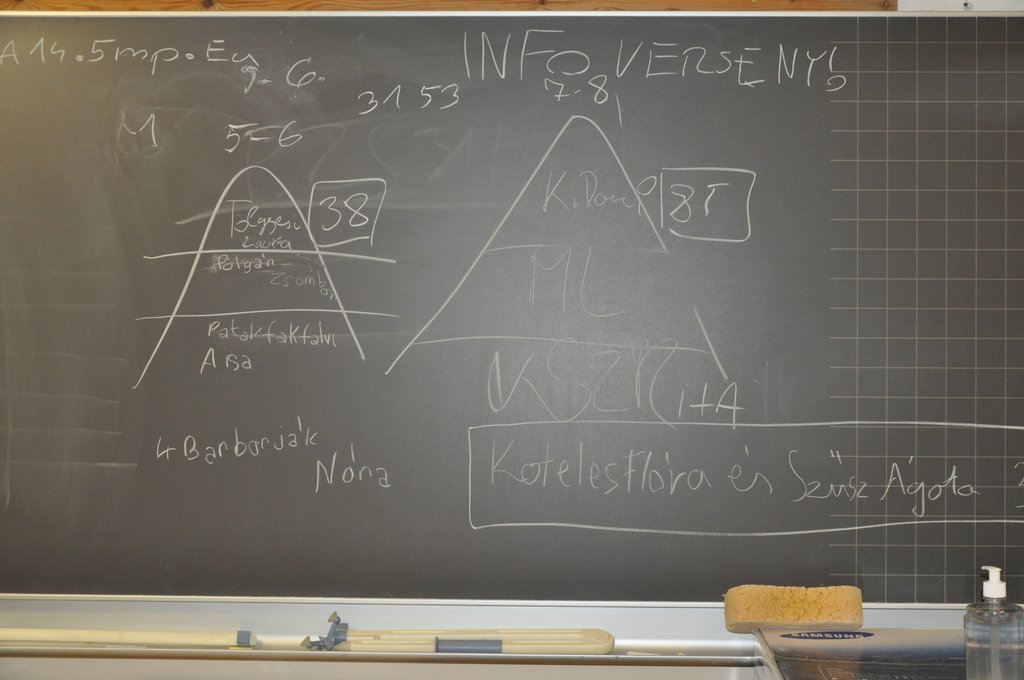 A 14.5mp. Ea
5-6.
INFO VERSENY!
7-8
3153
5-6
Tölgyesi
Laura
38
Polyán
Zsombor
Patakfalvi
Arsa
K. Dani
8T
ML
KSZR
i+A
4 Barborják
Nóna
Kotelesflóra és Szüsz Ágota
SAMSUNG